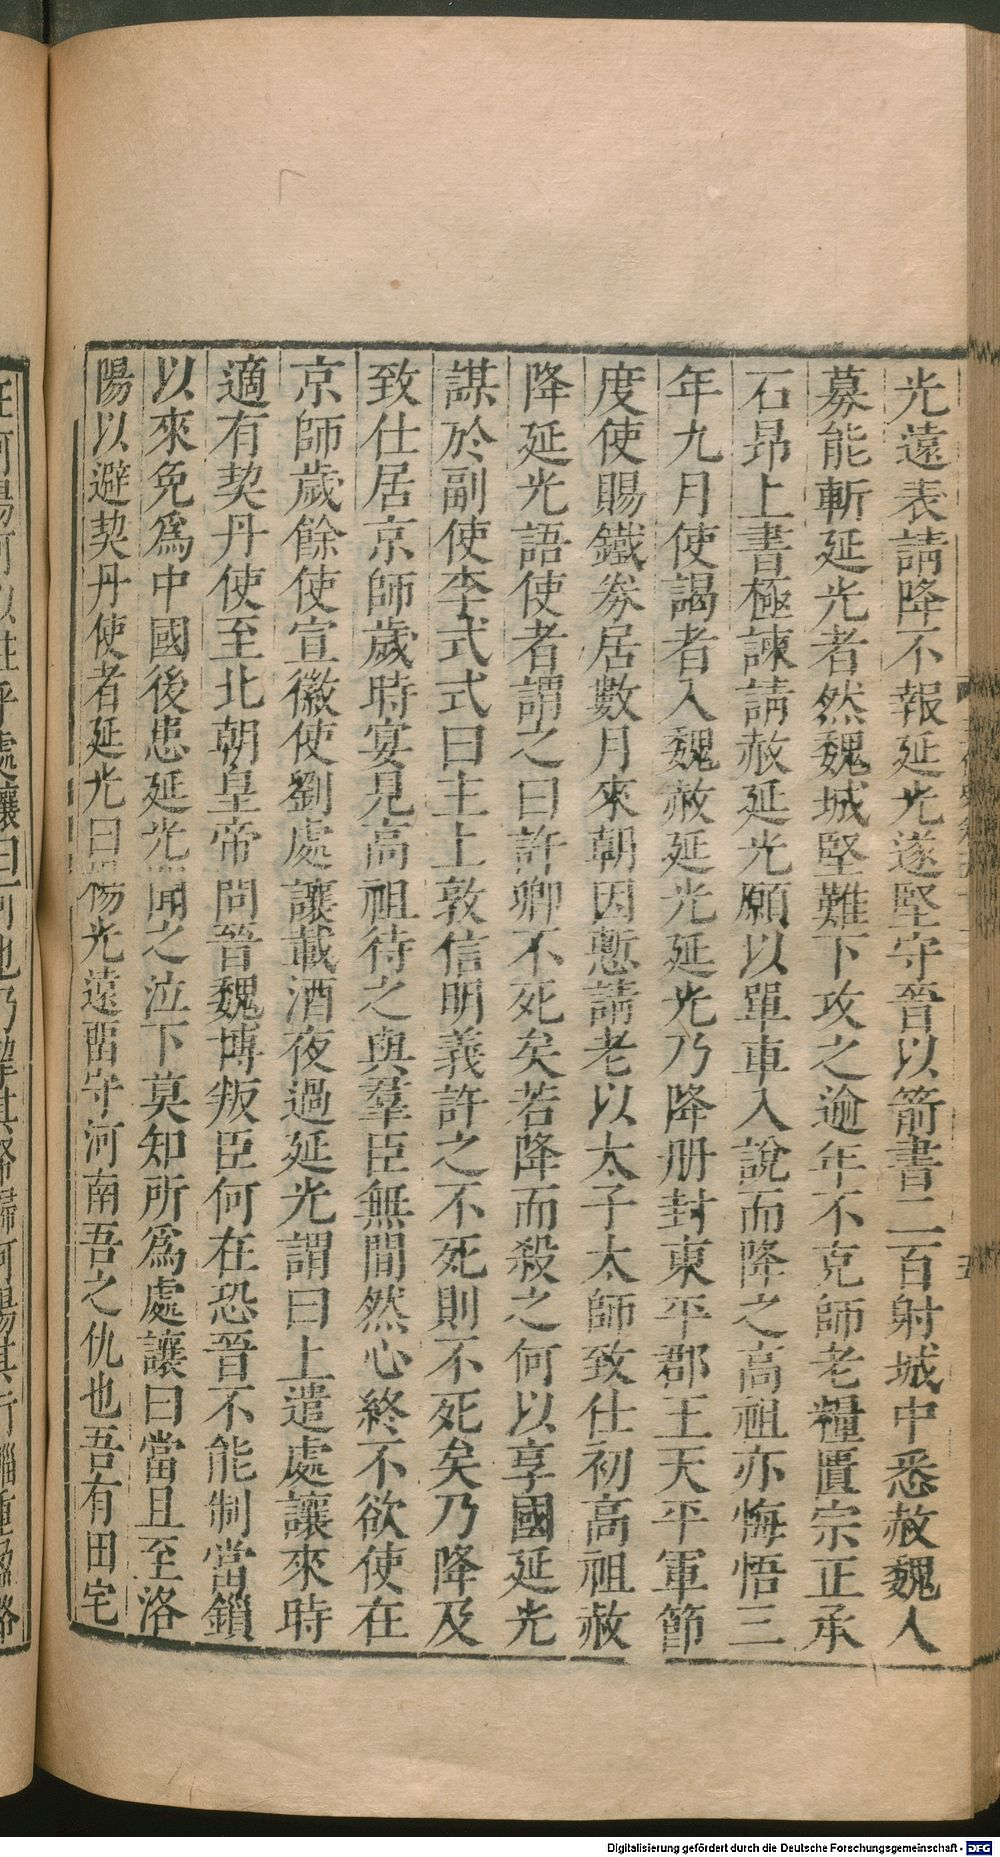 光遠表請降不報延光遂堅守晉以箭書二百射城中悉赦魏人
募能斬延光者然魏城堅難下攻之逾年不克師老糧匱宗正丞
石昂上書極諫請赦延光願以單車入說而降之高祖亦悔悟三
年九月使謁者入魏赦延光延光乃降册封東平郡王天平軍節
度使賜鐵券居數月來朝因慙請老以太子太師致仕初高祖赦
降延光語使者謂之曰許卿不死矣若降而殺之何以享國延光
謀於副使李式式曰主上敦信明義許之不死則不死矣乃降及
致仕居京師歲時宴見高祖待之與羣臣無間然心終不欲使在
京師歲餘使宣徽使劉處讓載酒夜過延光謂曰上遣處讓來時
適有契丹使至北朝皇帝問晉魏博叛臣何在恐晉不能制當鎖
以來免爲中國後患延光聞之泣下莫知所爲處讓曰當且至洛
陽以避契丹使者延光曰楊光遠畱守河南吾之仇也吾有田宅
Digitalisierung gefördert durch die Deutsche Forschungsgemeinschaft - DFG